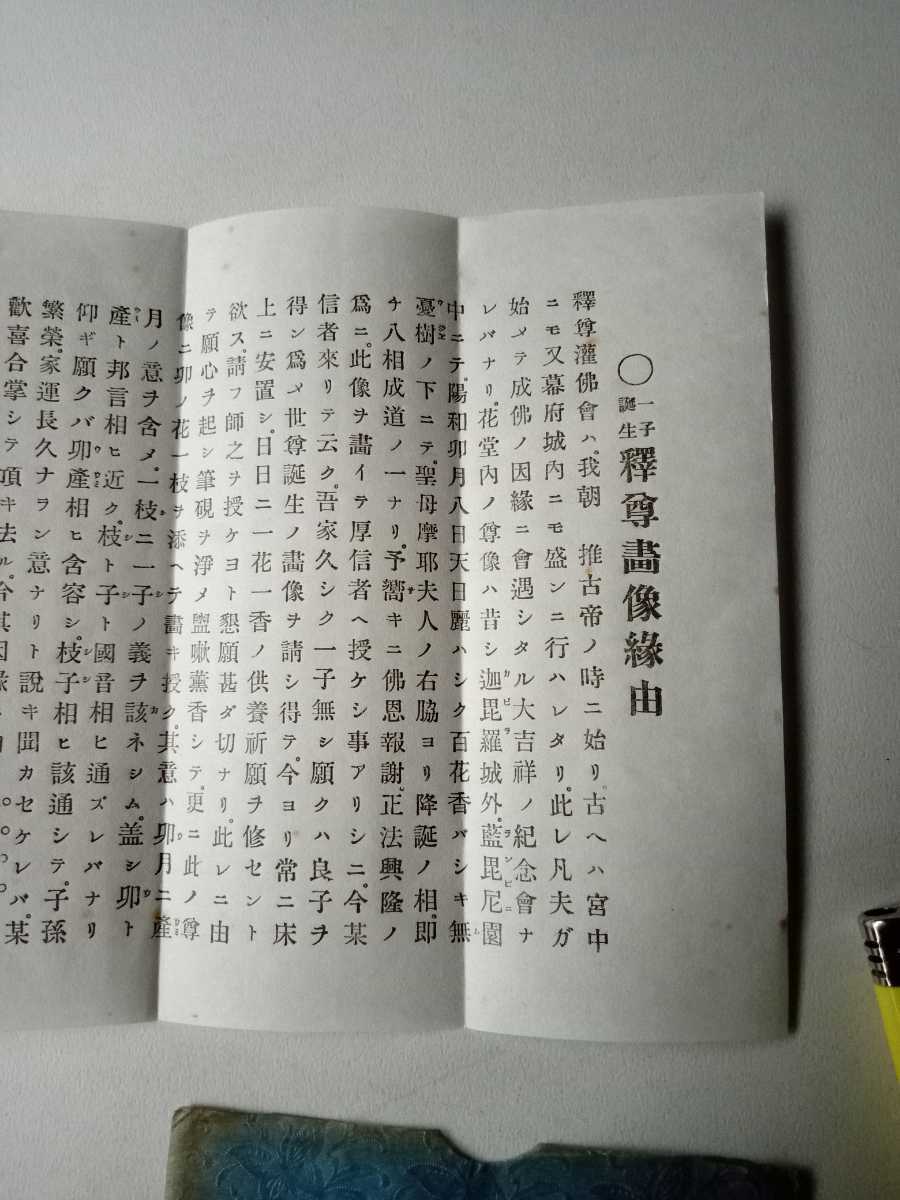 〇一子誕生釋尊畫像緣由
釋尊灌佛會ハ。我朝　推古帝ノ時ニ始リ。古ヘハ宮中
ニモ又幕府城內ニモ盛ンニ行ハレタリ。此レ凡夫ガ
始メテ成佛ノ因緣ニ會遇シタル大吉祥ノ紀念會ナ
レバナリ。花堂內ノ尊像ハ昔シ迦毘羅城外。藍毘尼園
中ニテ。陽和卯月八日天日麗ハシク百花香バシキ無
憂樹ノ下ニテ。聖母摩耶夫人ノ右脇ヨリ降誕ノ相。即
チ八相成道ノ一ナリ。予嚮キニ佛恩報謝。正法興隆ノ
爲ニ。此像ヲ畫イテ厚信者ヘ授ケシ事アリシニ。今某
信者來リテ云ク。吾家久シク一子無シ願クハ良子ヲ
得ン爲メ世尊誕生ノ畫像ヲ請シ得テ。今ヨリ常ニ床
上ニ安置シ。日日ニ一花一香ノ供養祈願ヲ修セント
欲ス。請フ師之ヲ授ケヨト懇願甚ダ切ナリ。此レニ由
テ願心ヲ起シ筆硯ヲ淨メ盥嗽薰香シテ。更ニ此ノ尊
像ニ卯ノ花一枝ヲ添ヘテ畫キ授ク。其意ハ卯月ニ產
月ノ意ヲ含メ。一枝ニ一子ノ義ヲ該ネシム。盖シ卯ト
產ト邦言相ヒ近ク。枝ト子ト國音相ヒ通ズレバナリ
仰ギ願クバ卯產相ヒ含容シ。枝子相ヒ該通シテ。子孫
繁榮。家運長久ナラン意ナリト說キ聞カセケレバ。某
歡喜合掌シテ項キ去ル。今其因緣